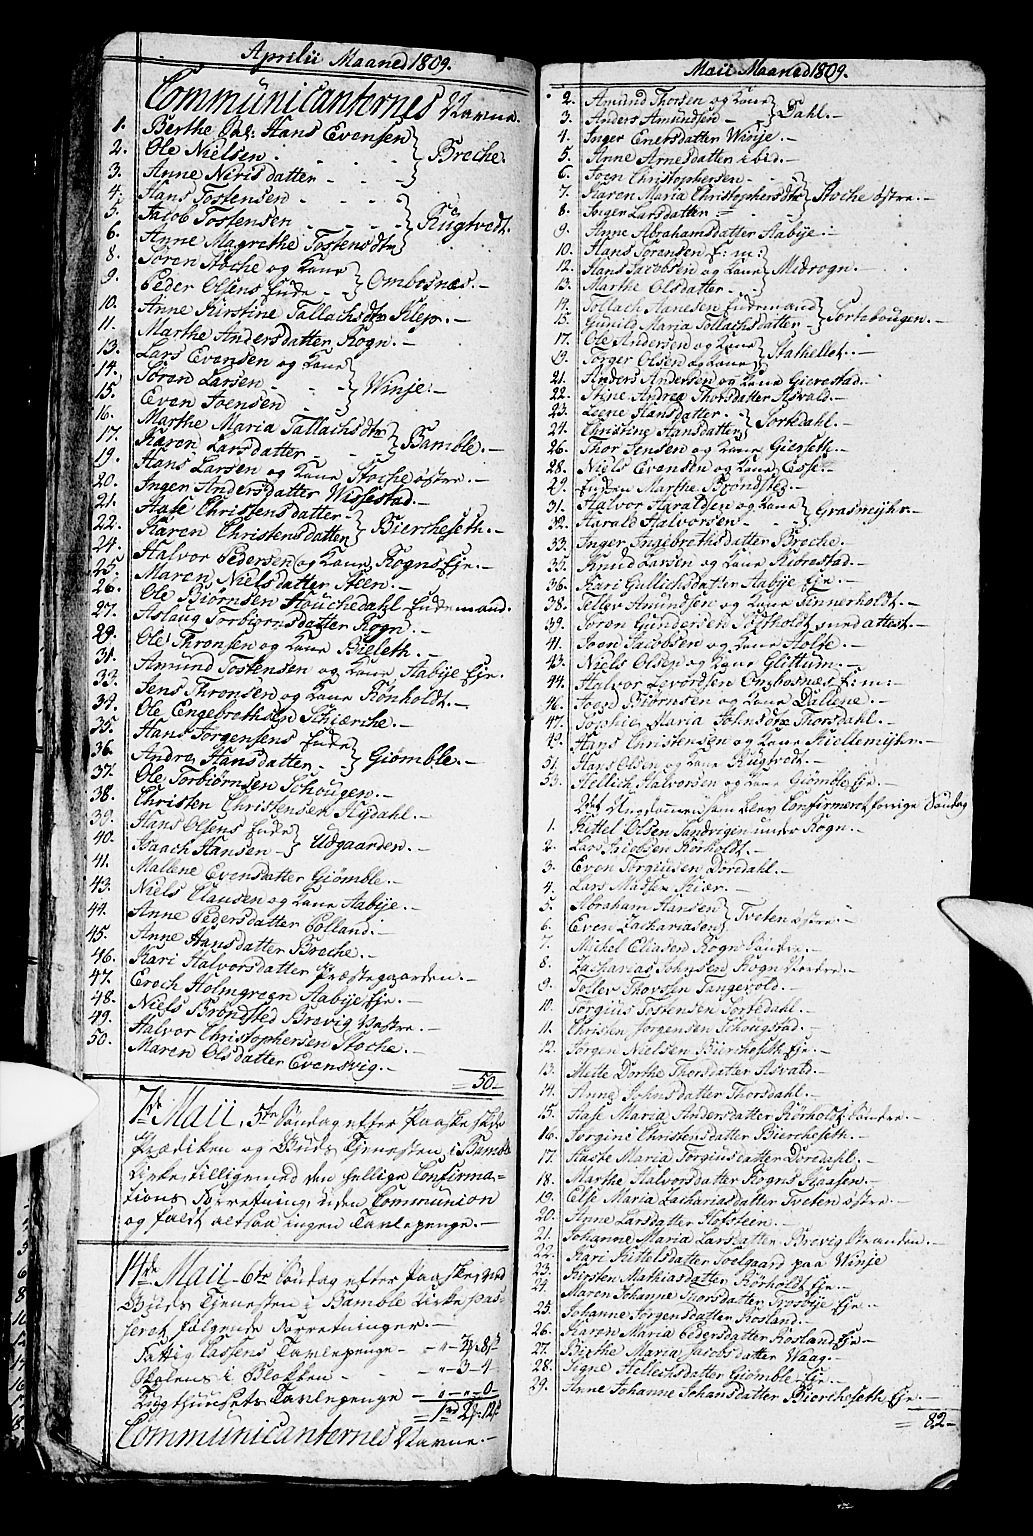 Aprilii Maaned 1809.
Communicanternes Navne.
1. Berthe Hans Evensen
2. Ole Nielsen Broche.
3. Anne Nirisdatter
4. Hans Tostensen
5. Jacob Tostensen Rugtvedt.
6. Anne Magrethe Tostensdtr
8. Søren Stoche og Kone
9. Peder Olsens Enke Ombosnæs.
10. Anne Kirstine Tallachsdtr Klep.
11. Marthe Andersdatter Rogn.
13. Lars Evensen og Kone
14. Søren Larsen Winje.
15. Even Joensen
16. Marthe Maria Tallachsdtr
17. Karen Larsdatter Bamble.
19. Hans Larsen og Kone Stoche østre.
20. Inger Andersdatter Wissestad.
21. Aase Christensdatter
22. Karen Christensdatter Biercheseth.
24. Halvor Pedersen og Kone Rogns Eje.
25. Maren Nielsdatter Aaen.
26. Ole Biørnsen Houchedahl Enkemand.
27. Aslaug Torbiørnsdatter Rogn.
29. Ole Thronsen og Kone Bieleth.
31. Amund Tostensen og Kone Aabije Eje.
33. Jens Thronsen og Kone Rønholdt.
34. Ole Engebrethsen Schierche.
35. Hans Jørgensens Enke
36. Andrea Hansdatter Giømble.
37. Ole Torbiørnsen Schougen.
38. Christen Christensen Aigdahl.
39. Hans Olsens Enke
40. Isaach Hansen Udgaarden.
41. Mallene Evensdatter Giømble.
43. Niels Clausen og Kone Aabije.
44. Anne Pedersdatter Tolland.
45. Anne Hansdatter Broche.
46. Kari Halvorsdatter Præstegaarden.
47. Erich Holmgreen Aabije Eje.
48. Niels Brøndsted Brevig Vestre.
49. Halvor Christophersen Stoche.
50. Maren Olsdatter Evensvig.
= 50
7de Maii, 5te Søndag efter Paaske skede
Prædiken og Guds Tjenesten i Bamble
Kirke tilligemed den hellige Confirma-
tions Forretning, uden Communion
og faldt altsaa ingen Tavlepenge.
14de Maii 6te Søndag efter Paaske ved
Guds Tjenesten i Bamble Kirke pas-
seret følgende Forretninger.
Fattig Cassens Tavlepenge
Skolens i Blokken " 3 - 4
Tugthusets Tavlepenge " - " - 0
Communicanternes Navne.
Maii Maaned 1809.
2. Amund Thorsen og Kone
3. Anders Amundsen Dahl.
4. Inger Enersdatter Winje.
5. Anne Arnesdatter ibid.
6. Joen Christophersen
7. Karen Maria Christophersdtr Stoche østre.
8. Inger Larsdatter
9. Anne Abrahamsdatter Aabije.
10. Hans Sørensen E: m:
12. Hans Jacobsen og Kone Midrogn.
13. Marthe Olsdatter
14. Tollach Hanesen Enkemand
15. Gunild Maria Tollachsdatter Tortebougen.
17. Ole Andersen og Kone
19. Torger Olsen og Kone Stathellet.
21. Anders Andersen og Kone Gierestad.
22. Stine Andrea Thorsdatter Asvald.
23. Leene Hansdatter
24. Christine Hansdatter Tortdahl.
26. Thor Jensen og Kone Gierseth.
28. Niels Evensen og Kone Esse.
29. Enken Marthe Brøndsted.
31. Halvor Haraldsen og Kone
32. Harald Halvorsen Grasmyhr.
33. Inger Ingebrethsdatter Broche.
35. Knud Larsen og Kone Ribrestad.
36. Kari Gullichsdatter Aabije Eje.
38. Tellev Amundsen og Kone Finnerholdt.
39. Søren Gundersen med attest.
41. Joen Jacobsen og Kone Holte.
43. Niels Olsen og Kone Glittum.
44. Halvor Levordsen Ombosnæs E: m:
46. Joen Biørnsen og Kone Dallene.
47. Sophie Maria Johnsdtr Thorsdahl.
49. Hans Christensen og Kone Kiellemyhr.
51. Hans Olsen og Kone Rugtvedt.
53. Hellich Halvorsen og Kone Giømble Eje.
Det Ungdommen som blev Confirmert forrige Søndag
1. Kittel Olsen Sandvigen under Rogn.
2. Lars Jacobsen Rørholdt.
3. Even Torgiusen Dørdahl.
4. Lars Madsen Kier.
5. Abraham Hansen
6. Even Zachariasen Tveten østre
7. Michel Eliasen Rogn Søndre.
8. Zacharias Johnsen Rogn Nordre.
9. Tollev Thorsen Langevold.
10. Torgius Tostensen Tortedahl.
11. Christen Jørgensen Schougstad.
12. Jørgen Nielsen Biercheseth Eje.
13. Mette Dorthe Thorsdatter Asvald.
14. Anne Johnsdatter Thorsdahl.
15. Aase Maria Andersdatter Rørholdt Søndre.
16. Jørgine Christensdatter Biercheseth.
17. Aase Maria Torgiusdatter Dørdahl.
18. Marthe Halvorsdatter Rogns Haasen.
19. Else Maria Zachariasdatter Tveten østre
20. Anne Larsdatter Hofsteen.
21. Johanne Maria Larsdatter Brevig Stranden.
22. Kari Kittelsdatter Soelgaard paa Winje
23. Kirsten Mathiasdatter Rørholdt Eje.
24. Maren Johanne Thorsdatter Trosbye Eje.
25. Johanne Jørgensdatter Rosland.
26. Karen Maria Pedersdatter Rosland Eje.
27. Birthe Maria Jacobsdatter Waag.
28. Signe Hellichsdatter Giømble Eje.
29. Anne Johanne Johansdatter Biercheseth Eje.
= 82